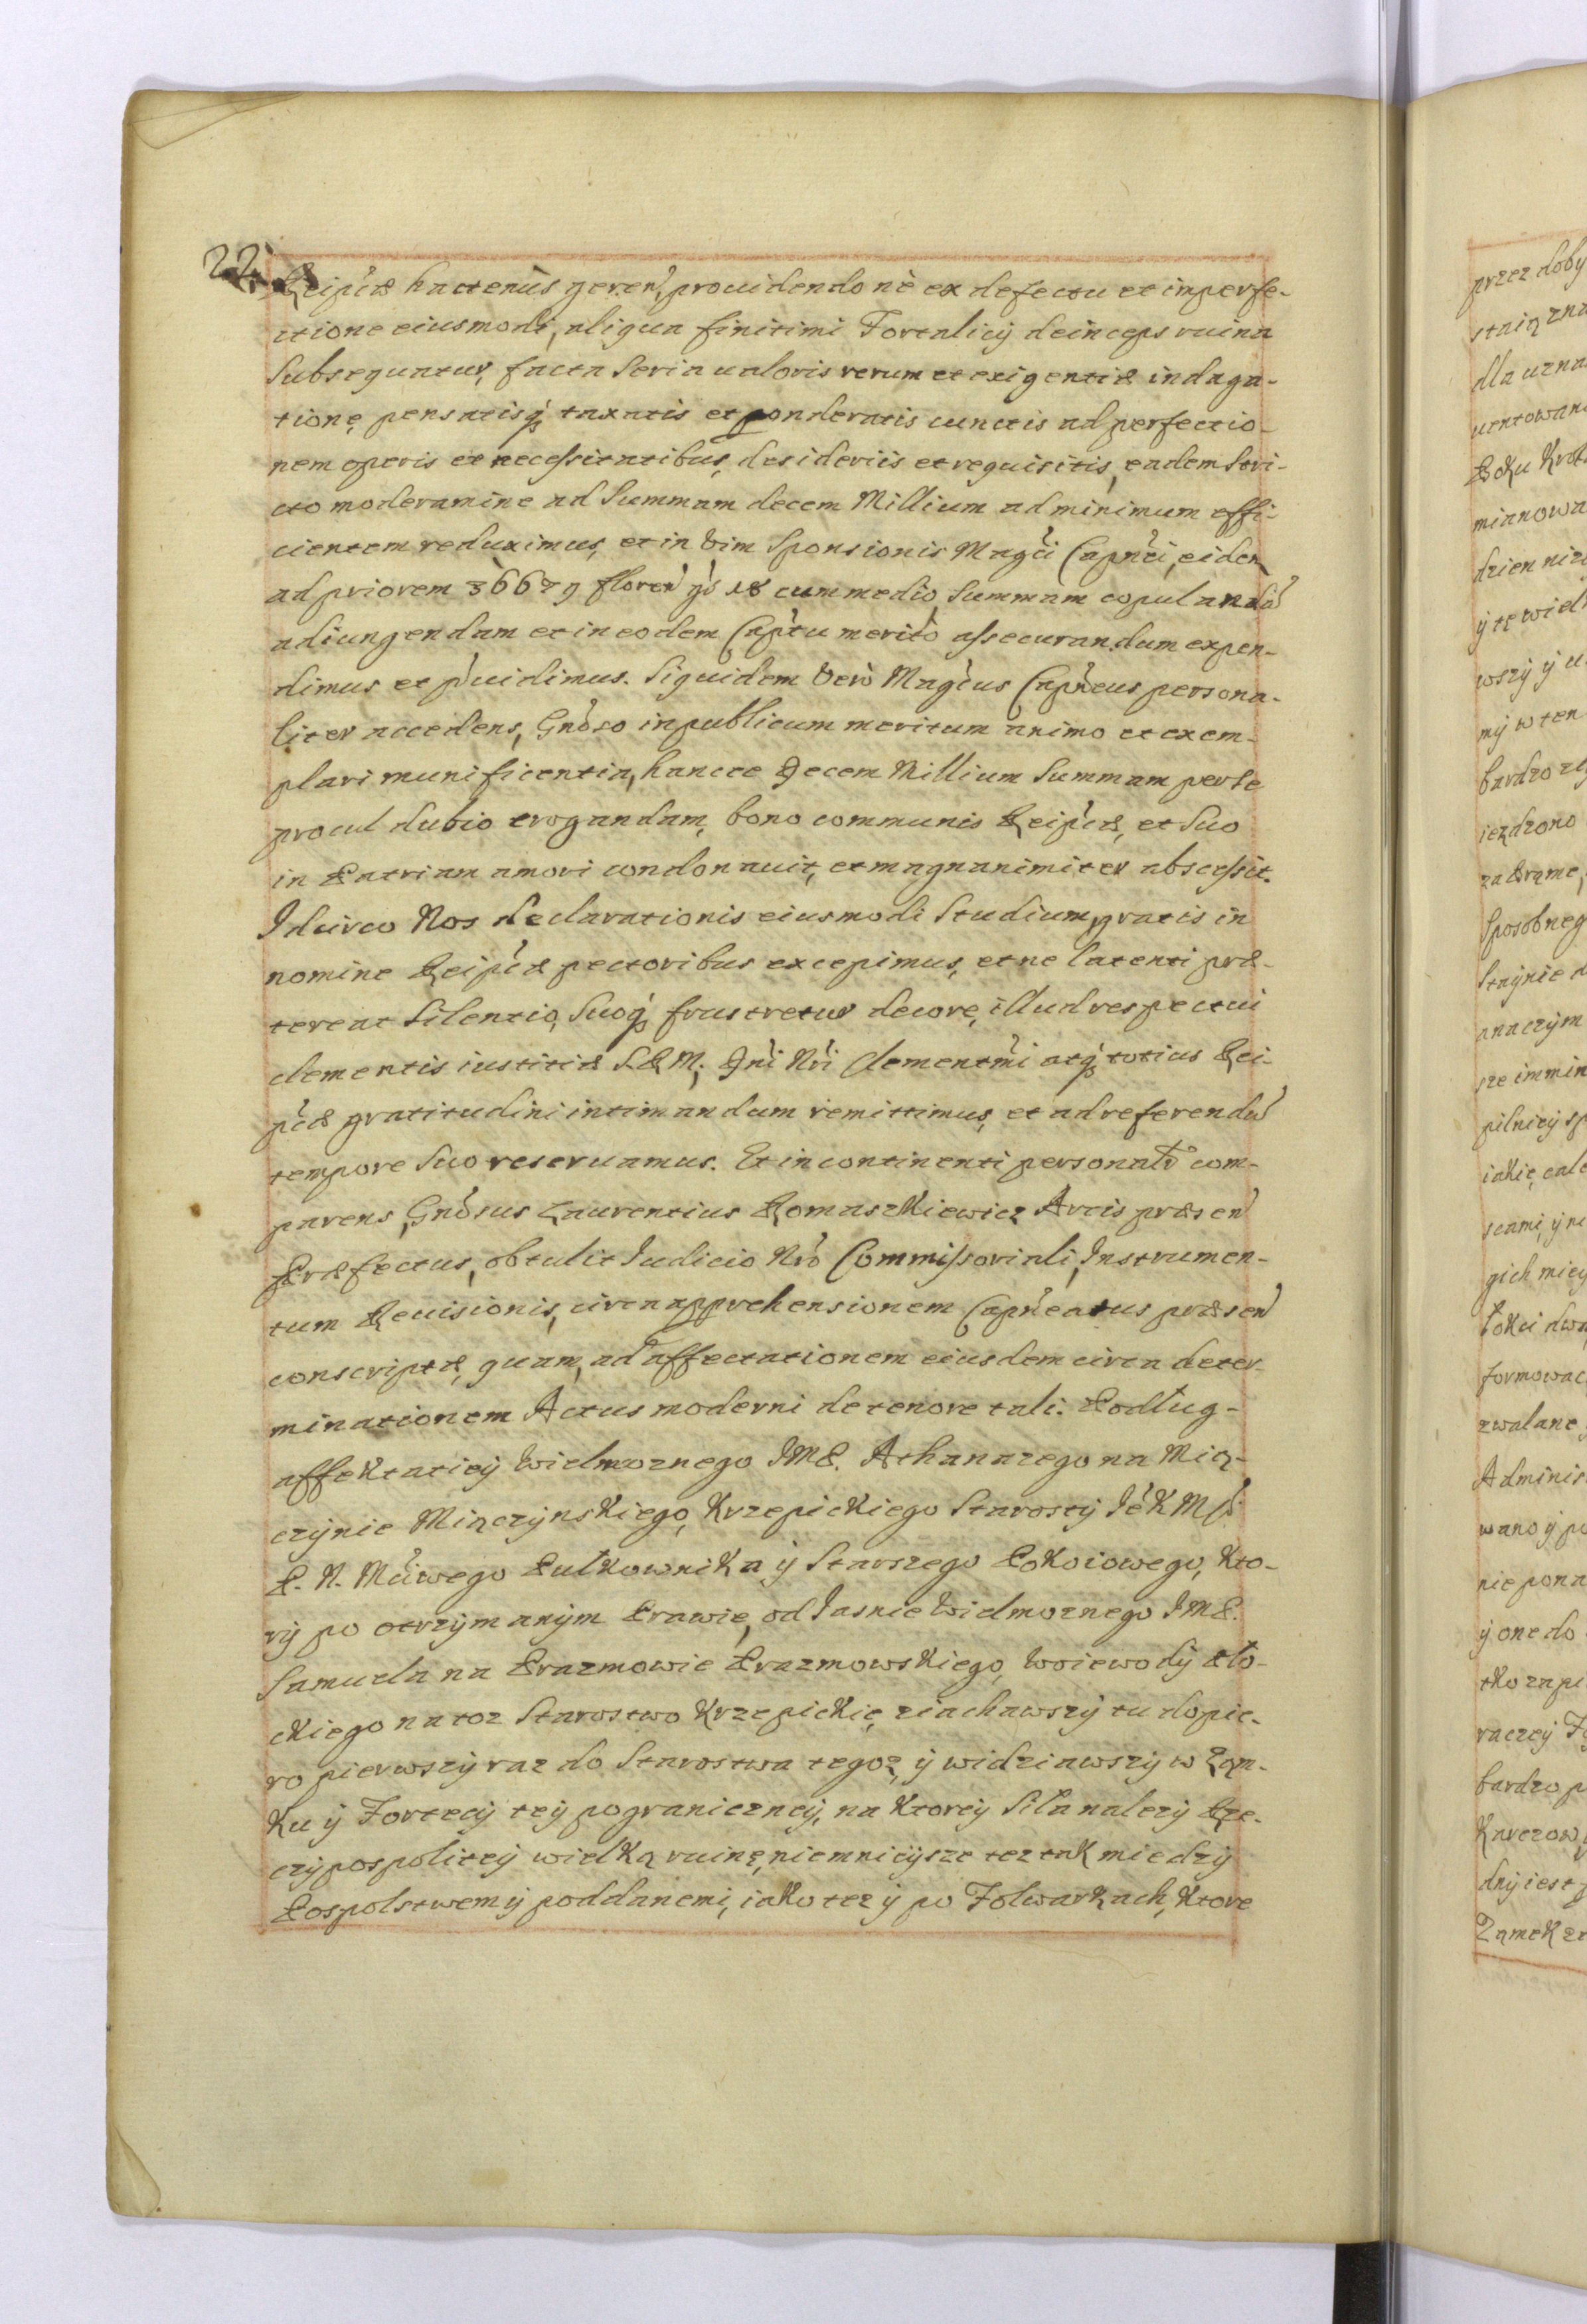 22.
Reip͠cæ hactenùs geren͠, prouidendo nè ex defectu et imperfe-
ctione eiusmodi, aliqua finitimi Fortalicij deinceps ruina
subsequatur, facta seria ualoris rerum et exigentiæ indaga-
tione, pensatisq; taxatis et ponderatis cunctis ad perfectio-
nem operis et necessitatibus, desideriis et requisitis, eadem stri-
cto moderamine ad Summam decem Millium ad minimum effi-
cientem reduximus, et in Vim Sponsionis Mag͠ci Capn͠ei, eidem
ad priorem 36679 floren͠ g͠s 18 cum medio, Summam copulandā
adiungendam et in eodem Cap͠tu meritò assecurandam expen-
dimus et p͠uidimus. Siquidem Verò Mag͠cus Capn͠eus persona-
liter accedens, Gn͠oso in publicum meritum animo et exem-
plari munificentia, hancce Decem Millium Summam per se
procul dubio erogandam, bono communis Reip͠cæ, et Suo
in Patriam amori condonauit, et magnanimiter abscessit.
Idcirco Nos declarationis eiusmodi Studium, gratis in
nomine Reip͠cæ pectoribus excepimus, et ne latenti præ-
tereat Silentio, Suoq; frustretur decore, illud respectui
clementis iustitiæ S.R.M. Dn͠i Nr͠i Clementm͠i atq; totius Rei-
p͠cæ gratitudini intimandum remittimus, et ad referendū
tempore Suo reseruamus. Et in continenti personalr͠ com-
parens, Gn͠osus Laurentius Romaszkiewicz Arcis præsen͠
Præfectus, obtulit Iudicio Nr͠o Commissoriali, Instrumen-
tum Reuisionis, circa apprehensionem Capn͠eatus præsen͠
conscriptæ, quam, ad affectationem eiusdem circa deter-
minationem Actus moderni de tenore tali: Podług-
affektatiey Wielmoznego JMP. Athanazego na Mią-
czynie Miączynskiego, Krzepickiego Starosty Je͠KMśi
P. N. Mć͠iwego Pułkownika y Starszego Pokoiowego, Kto-
ry po otrzymanym Prawie, od Jasnie Wielmoznego JMP.
Samuela na Prazmowie Prazmowskiego, Woiewody Pło-
ckiego na toz Starostwo Krzepickie, ziachawszy tu dopie-
ro pierwszy raz do Starostwa tegoz, y widziawszy w Zam-
ku y Fortecy tey pograniczney, na Ktorey Siła nalezy Rze-
czypospolitey wielką ruinę, niemnieysze tez tak miedzy
Pospolstwem y poddanemi, iako tez y po Folwarkach, Ktore
przez doby
staią zna
dla uzna
mianowa
bardzo
Sposobneg
Staynie d
pilniey sp
formowac
Adminis
bardzo p
Zamek